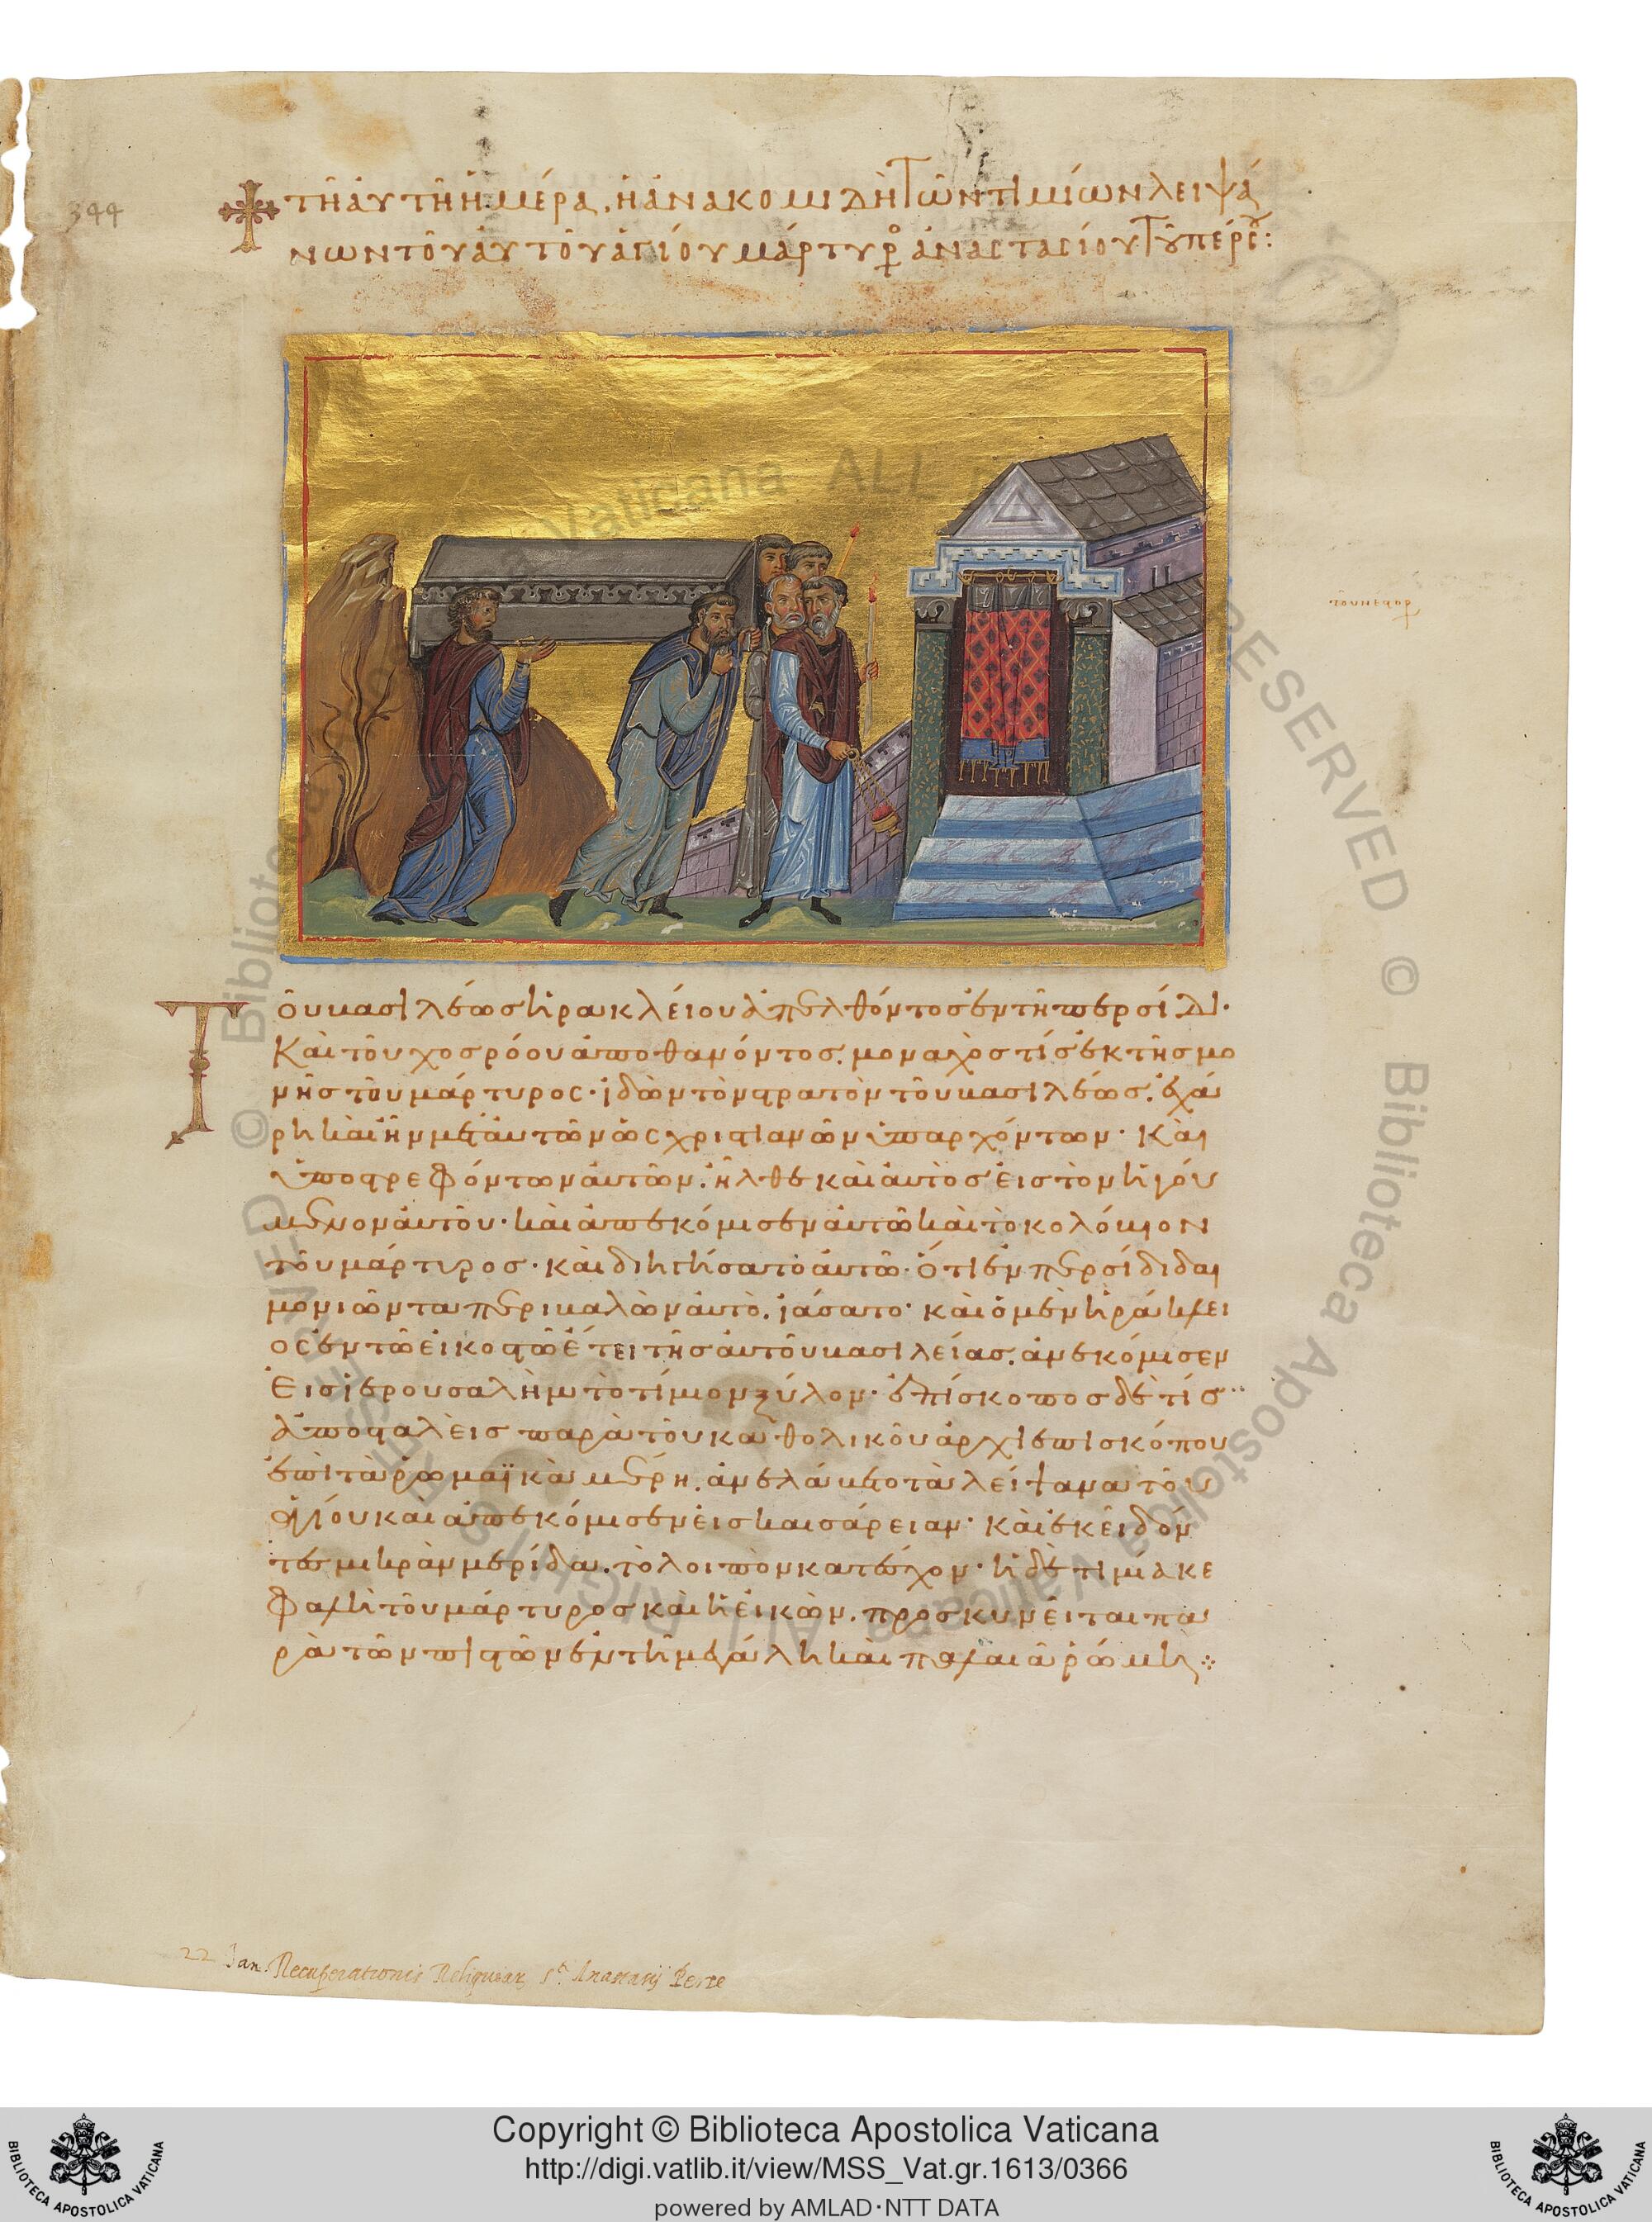 344
τῆ ἀυτῆ ἡμέρα, ἡ ἀνακομιδὴ τῶν τιμίων λειψά
νων τοῦ ἀυτοῦ ἁγίου μάρτυρο ἀναστασίου τοῦ πέρσου:
Τοῦ βασιλέως ἡρακλείου ἀπελθόντος ἐν τῆ περσίδι·
Καὶ τοῦ χοσρόου ἀποθανόντος. μοναχός τίς ἐκ τῆς μο
νῆς τοῦ μάρτυρος· ἰδὼν τὸν στρατὸν τοῦ βασιλέως. ἐχά
ρη καὶ ἦν μετ ἀυτῶν ὡς χριστιανῶν ὑπαρχόντων· Κὰι
ὑποστρεφόντων ἀυτῶν. ἦλθε καὶ ἀυτὸς ἐις τὸν ἡγού
μενον ἀυτοῦ· καὶ ἀπεκόμισεν ἀυτῶ καὶ τὸ κολόβιον
τοῦ μάρτυρος· καὶ διηγήσατο ἀυτῶ· ὅτι ἐν περσίδι δαι
μονιῶντα περιβαλὼν ἀυτὸ. ἰάσατο· καὶ ὁ μὲν ἡράκλει
ος ἐν τῶ εἰκοστῶ ἔτει τῆς ἀυτοῦ βασιλείας. ἀνεκόμισεν
Εἰς ἱερουσαλὴμ τὸ τίμιον ξύλον· ἐπίσκοπος δέ τίς
ἀποσταλεὶς παρὰ τοῦ καθολικοῦ ἀρχιεπισκόπου
ἐπὶ τὰ ῥωμαϊκὰ μέρη. ἀνελάβετο τὰ λείψανα τοῦ
ἁγίου καὶ ἀπεκόμισεν ἐις καισάρειαν· κἀκεῖ δόν
τες μικρὰν μερίδα. τὸ λοιπὸν κατέχον· ἡ δὲ τιμία κε
φαλὴ τοῦ μάρτυρος καὶ ἡ ἐικὼν. προσκυνεῖται πα
ρὰ τῶν πιστῶν ἐν τῆ μεγάλη καὶ παλαιᾶ ῥώμη
22 Jan. Recuperationis Reliquiar. Sti. Anastasij Perse
Copyright © Biblioteca Apostolica Vaticana
http://digi.vatlib.it/view/MSS_Vat.gr.1613/0366
powered by AMLAD·NTT DATA
BIBLIOTECA APOSTOLICA VATICANA
BIBLIOTECA APOSTOLICA VATICANA
© Biblioteca Apostolica Vaticana ALL RIGHTS RESERVED © Biblioteca Apostolica Vaticana ALL RIGHTS RESERVED